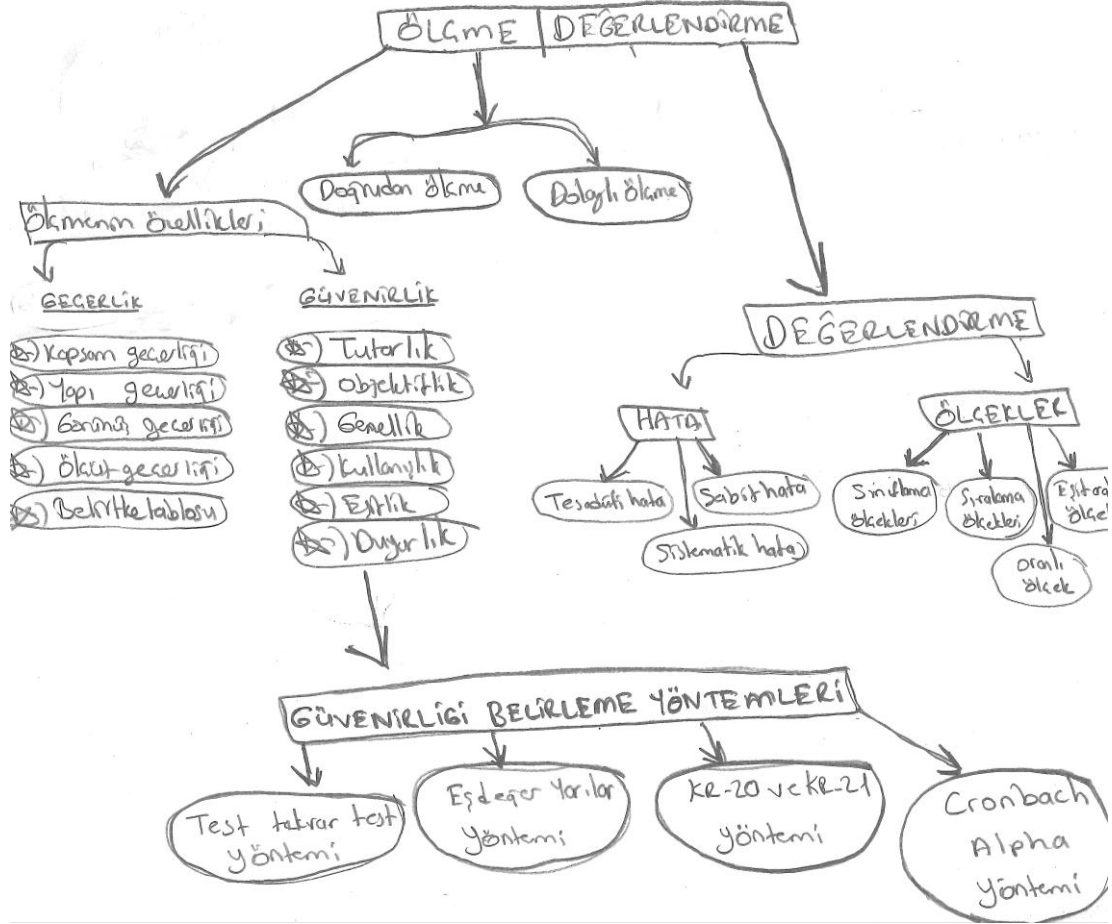 ÖLÇME | DEĞERLENDİRME
Doğrudan ölçme
Dolaylı ölçme
Ölçmenin özellikleri
GEÇERLİK
GÜVENİRLİK
Kapsam geçerliği
Yapı geçerliği
Görünüş geçerliği
Ölçüt geçerliği
Belirtke tablosu
Tutarlık
Objektiflik
Genellik
Kullanışlık
Eşitlik
Duyarlık
DEĞERLENDİRME
HATA
ÖLÇEKLER
Tesadüfi hata
Sabit hata
Sistematik hata
Sınıflama
ölçekleri
Sıralama
ölçekleri
Eşit aralı
ölçek
Oranlı
ölçek
GÜVENİRLİĞİ BELİRLEME YÖNTEMLERİ
Test tekrar test
yöntemi
Eşdeğer Yarılar
yöntemi
KR-20 ve KR-21
yöntemi
Cronbach
Alpha
yöntemi